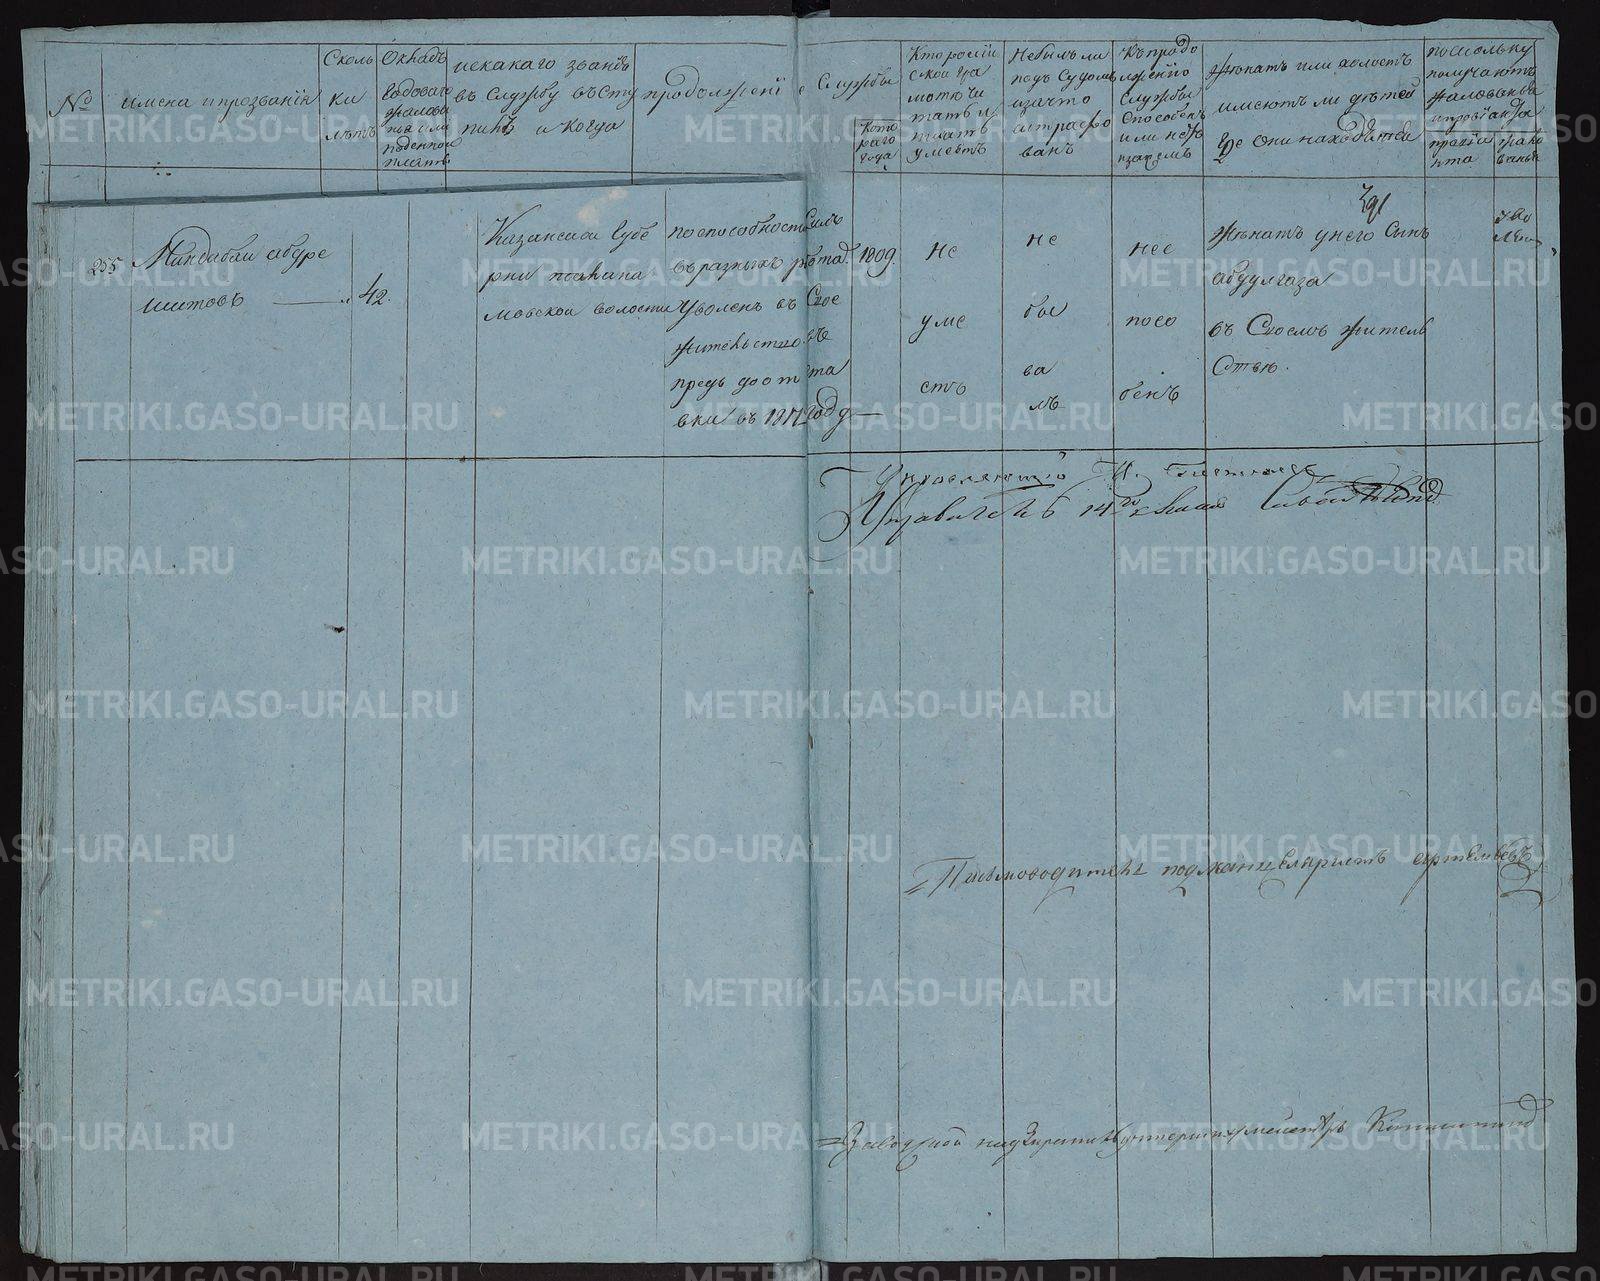 №
имена и прозвании
Сколь
ки
лѣтъ
Окладъ
годоваго
жалова
поденно
платы
ис какаго званія
въ службу всту
пилъ и когда
продолженіе службы
Кото
раго
года
Кто россій
ской гра
мотѣ чи
тать и
писать
умѣетъ
Небылъ ли
подъ судомъ
за что
аштрафо
ванъ
Къ продо
лженію
службы
способенъ
или нетъ
Женатъ или холостъ
имеютъ ли дѣтей
где они находятся
по скольку
получаютъ
жалованья
и провіанта
провіа
нта
жало
ванья
391
255
Миндабай абдре
шитовъ
42.
Казанской Губе
рни
мовской волости
по способности былъ
въ разныхъ работа.
Уволенъ въ свое
жительство въ
предь до от
вки въ 1817 году —
1809.
Не
уме
етъ
не
бы
ва
лъ
нес
посо
бенъ
Женатъ у него сынъ
абдулгаза
въ своемъ житель
ствѣ.
уво
лен
Управляющій
Правитель 14го класса
Писмоводитель подканцеляристъ артемьевъ
Заводской надзиратель унтершихтмейстеръ
METRIKI.GASO-URAL.RU